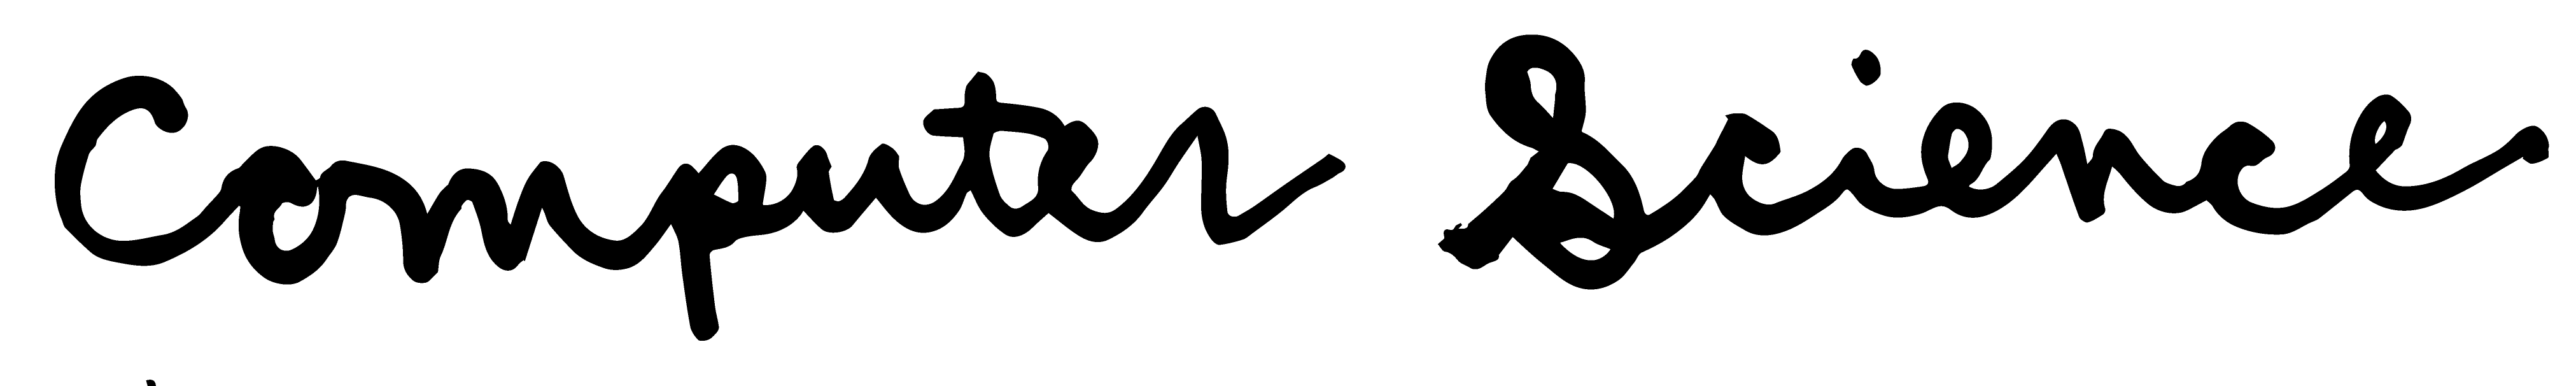 Computer Science